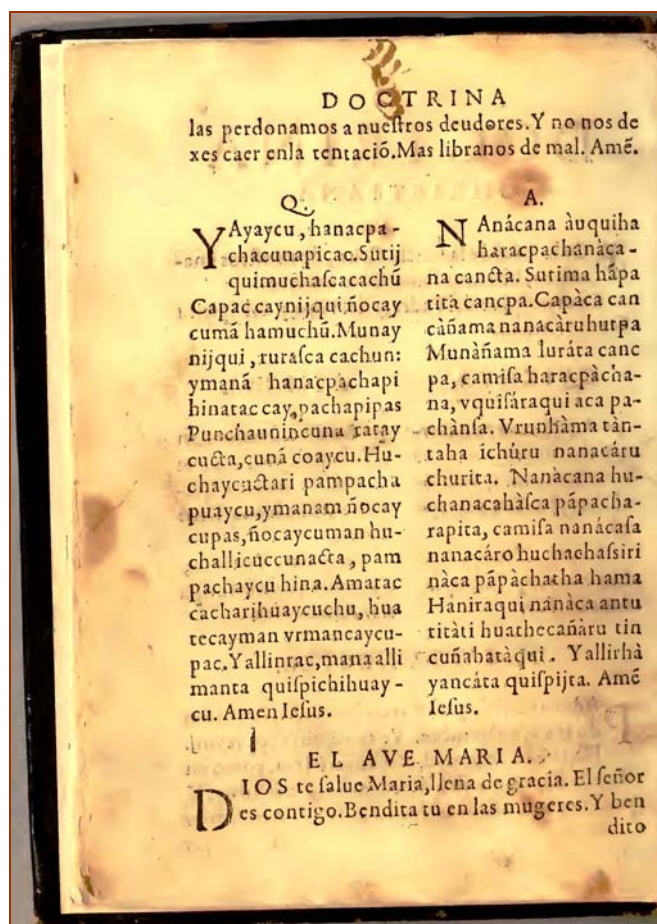 DOCTRINA
las perdonamos a nueſtros deudores.Y no nos de
xes caer enla tentaciō.Mas libranos de mal. Amē.
Q.
YAyaycu, hanacpa-
chacunapicac.Sutij
quimuchaſcacachū
Capac cay nijqui ñocay
cumā hamuchū.Munay
nijqui, ruraſca cachun:
ymanā hanacpachapi
hinatac cay, pachapipas
Punchaunincuna tatay
cucta, cunā coaycu. Hu-
chaycuctari pampacha
puaycu, ymanam ñocay
cupas, ñocaycuman hu-
challicuccunacta, pam
pachaycu hina. Amatac
cacharihuaycuchu, hua
tecayman vrmancaycu-
pac.Yallinrac, mana alli
manta quiſpichihuay-
cu. Amen Ieſus.
A.
NAnácana àuquiha
haracpachanàca-
na cancta. Sutima hāpa
tità cancpa.Capàca can
càñama nanacàru hutpa
Munàñama luràta canc
pa, camiſa haracpàcha-
na, vquiſáraqui aca pa-
chànſa. Vrunhàma tàn-
taha ichùru nanacáru
churita. Nanàcana hu-
chanacahàſca pāpacha-
rapita, camiſa nanácaſa
nanacáro huchachaſsiri
nàca pāpàchatha hama
Haniraqui nanàca antu
titàti huathecañàru tin
cuñahatàqui. Yallirhà
yancáta quiſpijta. Amē
Ieſus.
EL AVE MARIA.
DIOS te ſalue Maria, llena de gracia. El ſeñor
es contigo.Bendita tu en las mugeres.Y ben
dito